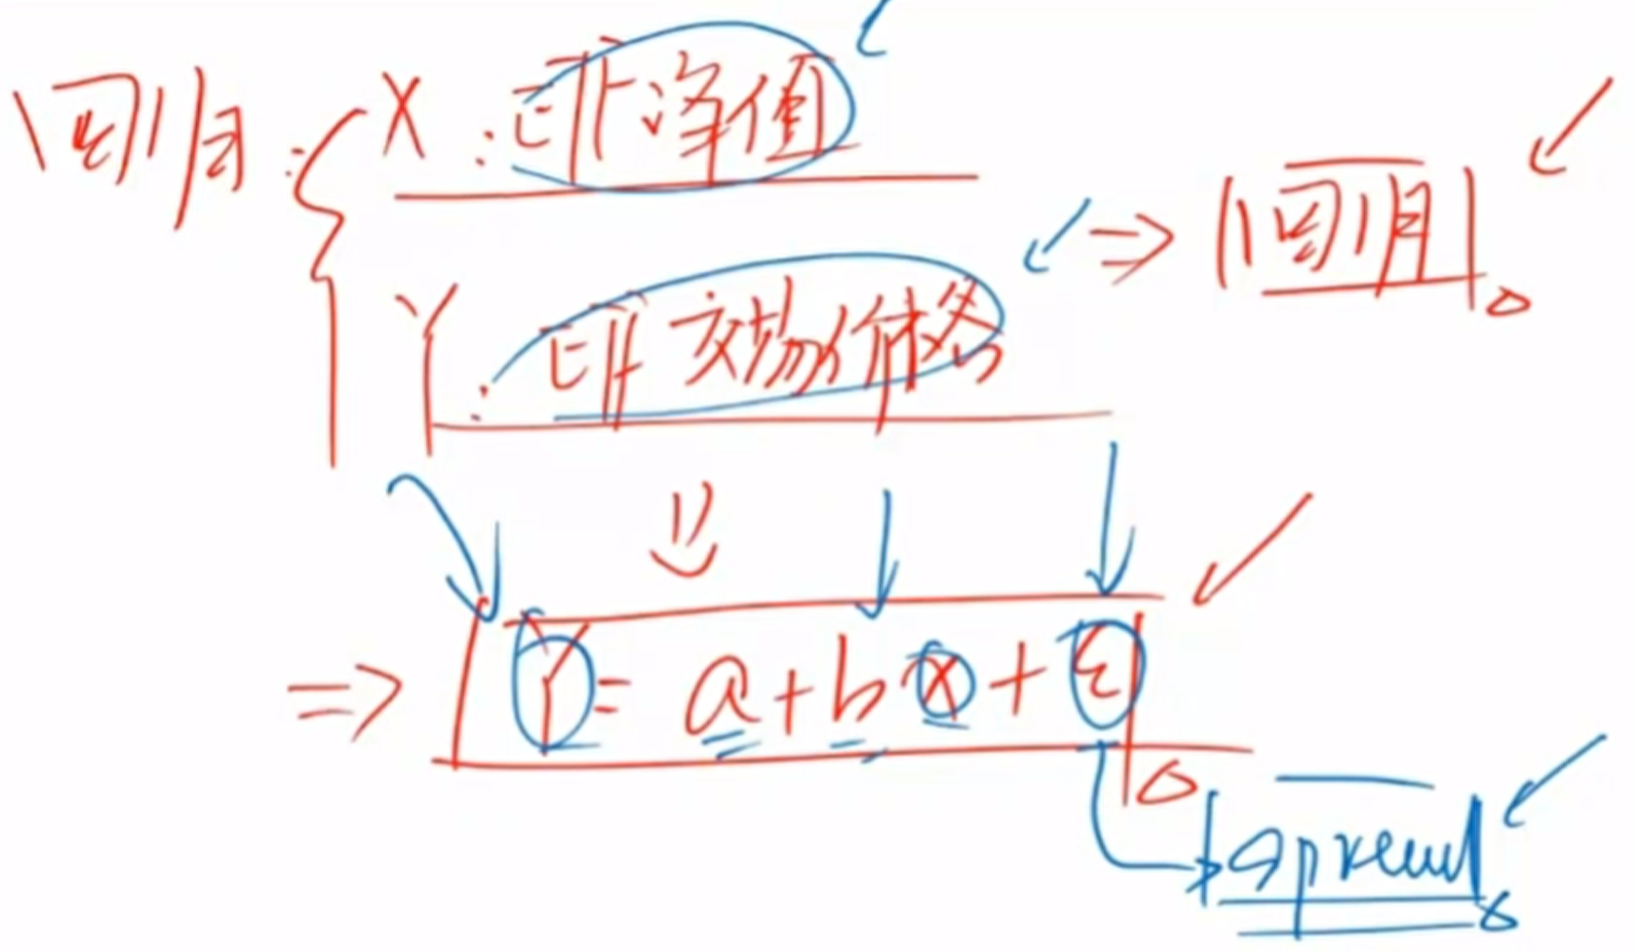 回归: X: ETF净值
Y: ETF交易价格
⇒ 回归
⇒ Y = a + bx + ε
spread